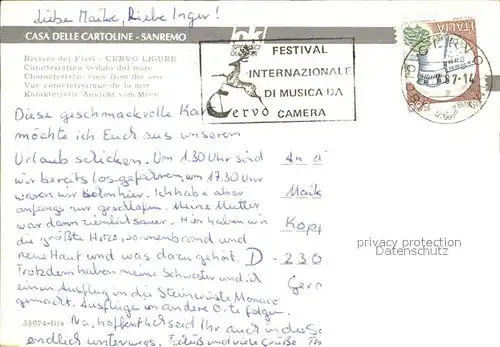 Liebe Maike, Liebe Inger!
CASA DELLE CARTOLINE - SANREMO
Riviera dei Fiori - CERVO LIGURE
Caratteristica veduta dal mare
Characteristic view from the sea
Vue caractéristique de la mer
Karakteristic Ansicht vom Meer
FESTIVAL
INTERNAZIONALE
DI MUSICA DA
CAMERA
Cervo
ITALIA
Diese geschmackvolle Kar
möchte ich Euch aus unserem
Urlaub schicken. Um 1.30 Uhr sind
wir bereits losgefahren, um 17.30 Uhr
waren wir schon hier. Ich habe aber
anfangs nur geschlafen. Meine Mutter
war dann ziemlich sauer. Hier haben wir
die größte Hitze, Sonnenbrand und
neue Haut und was dazu gehört.
Trotzdem haben meine Schwester und ich
einen Ausflug in die Steinwüste Monaco
gemacht. Ausflüge in andere Orte folgen.
Na, hoffentlich seid Ihr auch in
endlich unterwegs. und viele Grüße
An d
Maik
Kopp
D - 230
Germ
33074-Bis
privacy protection
Datenschutz